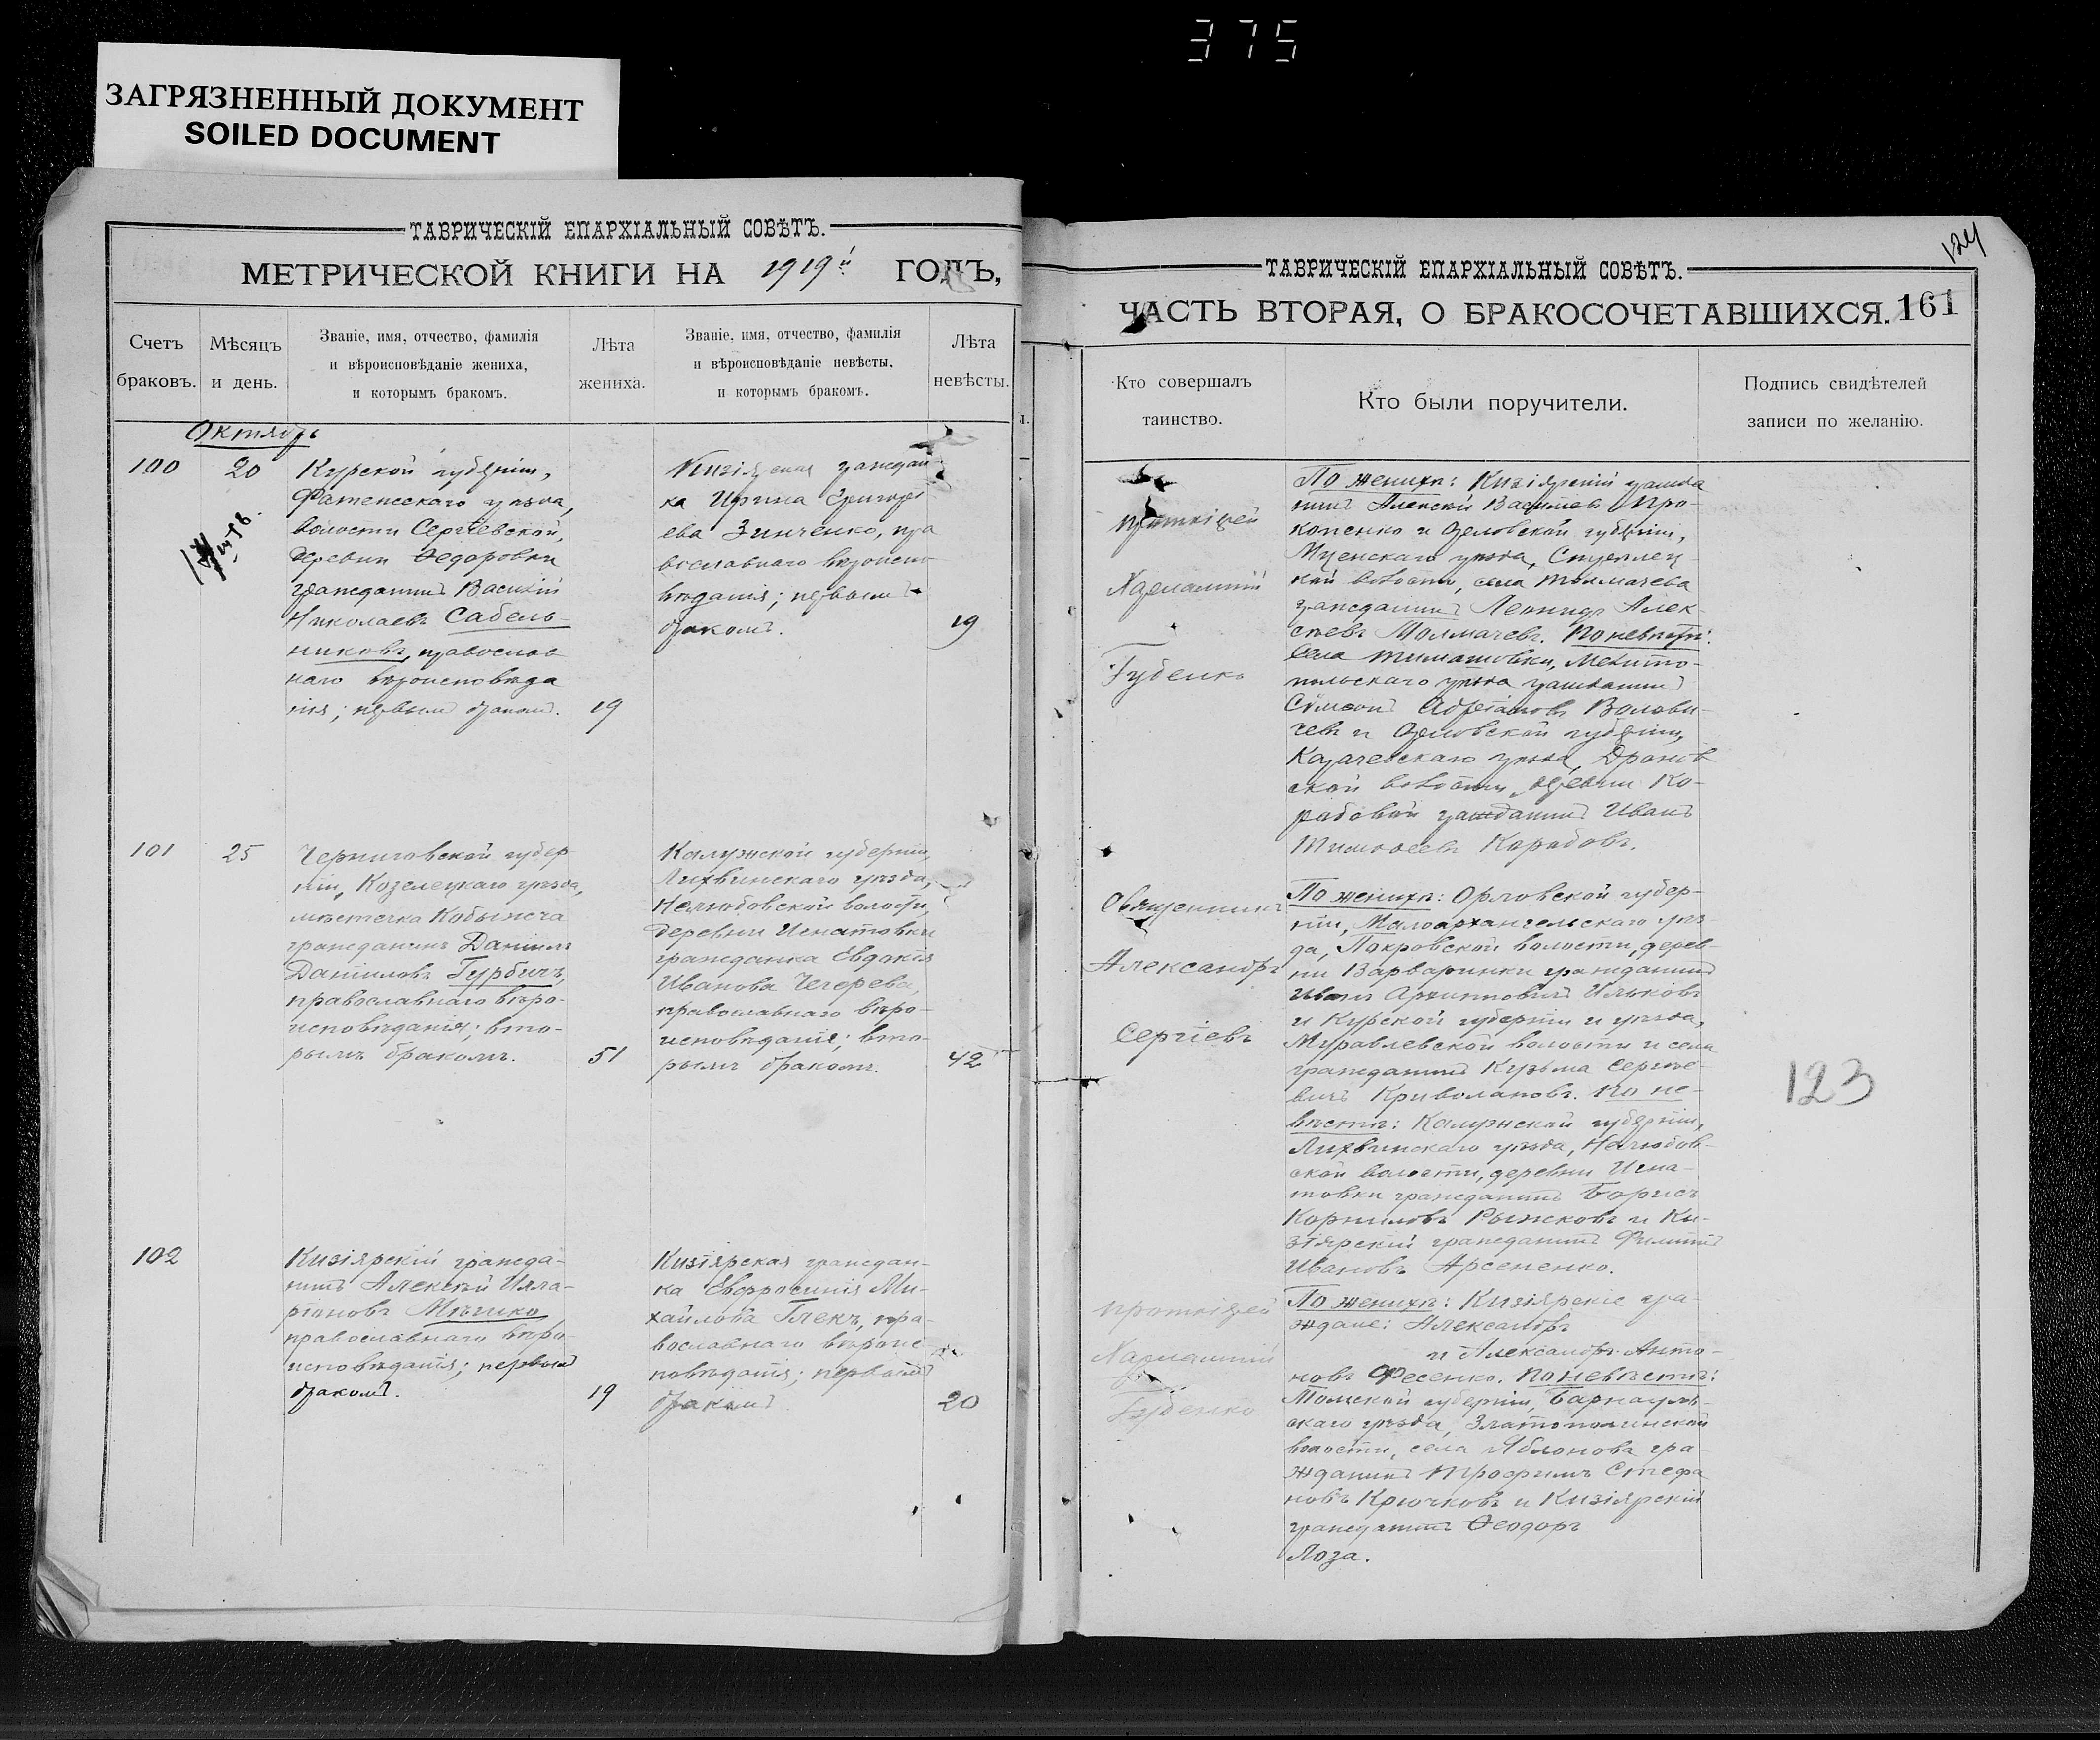 375
ЗАГРЯЗНЕННЫЙ ДОКУМЕНТ
SOILED DOCUMENT
ТАВРИЧЕСКІЙ ЕПАРХІАЛЬНЫЙ СОВѢТЪ.
МЕТРИЧЕСКОЙ КНИГИ НА 1919й ГОДЪ,
Счетъ браковъ.
Мѣсяцъ и день.
Званіе, имя, отчество, фамилія
и вѣроисповѣданіе жениха,
и которымъ бракомъ.
Лѣта
жениха.
Званіе, имя, отчество, фамилія
и вѣроисповѣданіе невѣсты,
и которымъ бракомъ.
Лѣта
невѣсты.
Октябрь
100
20
Курской губерніи,
Фатежскаго уѣзда,
волости Сергіевской,
деревни Ѳедоровки
гражданинъ Василій
Николаевъ Сабель-
никовъ, православ
наго вѣроисповѣда
нія; первым браком.
19
Кизіярская граждан
ка Ирина Григорі
ева Зинченко, пра
вославнаго вѣроиспо
вѣданія; первымъ
бракомъ.
19
101
25
Черниговской губер
ніи, Козелецкаго уѣзда,
мѣстечка Кобыжча
гражданинъ Даніилъ
Даніиловъ Гурбичъ,
православнаго вѣро-
исповѣданія; вто-
рымъ бракомъ.
51
Калужской губерніи,
Лихвинскаго уѣзда,
волости,
деревни Игнатовки
гражданка Евдокія
Иванова
православнаго вѣро-
исповѣданія; вто-
рымъ бракомъ.
42
102
Кизіярскій гражда-
нинъ Алексѣй Илла-
ріоновъ
православнаго вѣро-
исповѣданія; первым
бракомъ.
19
Кизіярская граждан-
ка Евфросинія Ми-
хайлова Грекъ, пра-
вославнаго вѣроис
повѣданія; первымъ
бракомъ.
20
124
ТАВРИЧЕСКІЙ ЕПАРХІАЛЬНЫЙ СОВѢТЪ.
ЧАСТЬ ВТОРАЯ, О БРАКОСОЧЕТАВШИХСЯ. 161
Кто совершалъ
таинство.
Кто были поручители.
Подпись свидѣтелей
записи по желанію.
протоіерей
Харлампій
Губенко
По женихѣ: Кизіярскій гражда
нинъ Алексѣй Про-
копенко и Орловской губерніи,
Мценскаго уѣзда,
кой волости, села Толмачева
гражданинъ Леонидъ Алек-
сѣевъ Толмачевъ. По невѣстѣ:
села Тимошовки, Мелито-
польскаго уѣзда гражданинъ
Сѵмеонъ
и Орловской губерніи,
Карачевскаго уѣзда, Дронов
ской волости, деревни Ко-
робовой гражданинъ Иванъ
Тимоѳеевъ Коробовъ.
Священникъ
Александръ
Сергіевъ
По женихѣ: Орловской губер-
ніи, Малоархангельскаго уѣз-
да, Покровской волости, дерев-
ни Варваринки гражданинъ
Иванъ Архиповичъ Ильковъ
и Курской губерніи и уѣзда,
Муравлевской волости и села
гражданинъ Кузьма Сергѣе-
вичъ По не-
вѣстѣ: Калужской губерніи,
Лихвинскаго уѣзда,
ской волости, деревни Игна-
товки гражданинъ Борисъ
Корниловъ Рыжковъ и Ки-
зіярскій гражданинъ Филиппъ
Ивановъ Арсененко.
123
протоіерей
Харлампій
Губенко
По женихѣ: Кизіярскіе гра-
ждане: Александръ
и Александръ Анто-
новъ Фесенко. По невѣстѣ:
Томской губерніи, Барнауль-
скаго уѣзда, Златополинской
волости, села Яблонова гра-
жданинъ Трофимъ Стефа
новъ Крючковъ и Кизіярскій
гражданинъ Ѳеодоръ
Лоза.